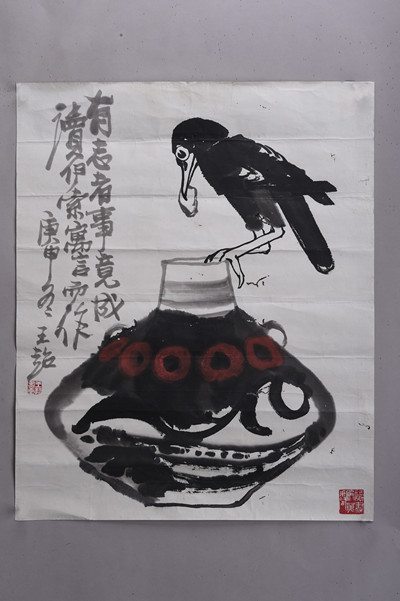 有志者事竟成
讀伊索寓言而作
庚申冬 王